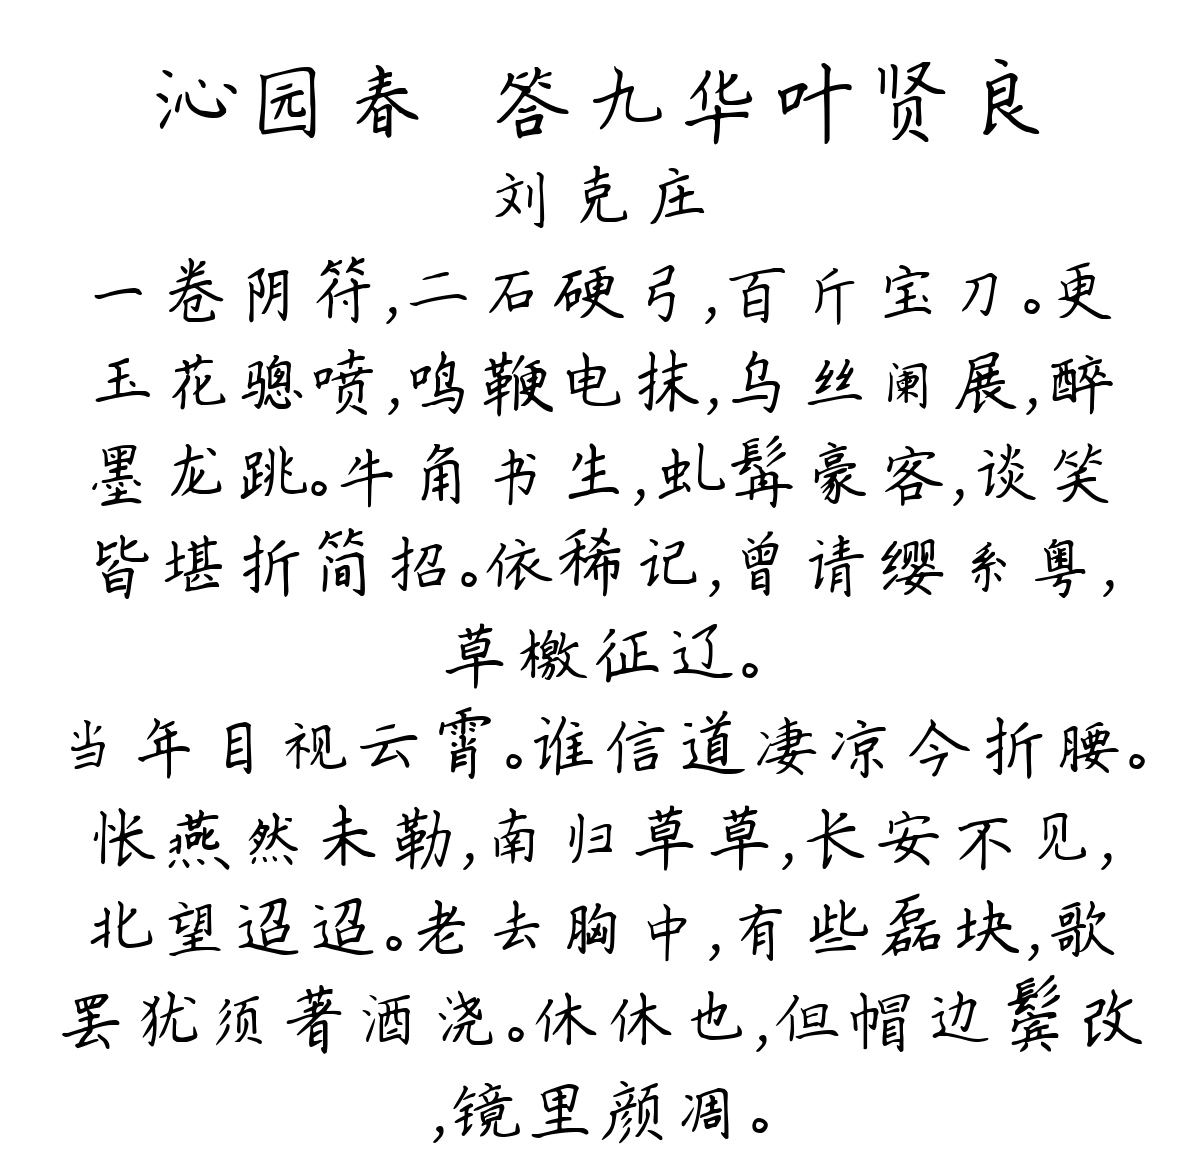 沁园春 答九华叶贤良
刘克庄
一卷阴符,二石硬弓,百斤宝刀。更
玉花骢喷,鸣鞭电抹,乌丝阑展,醉
墨龙跳。牛角书生,虬髯豪客,谈笑
皆堪折简招。依稀记,曾请缨系粤,
草檄征辽。
当年目视云霄。谁信道凄凉今折腰。
怅燕然未勒,南归草草,长安不见,
北望迢迢。老去胸中,有些磊块,歌
罢犹须著酒浇。休休也,但帽边鬓改
,镜里颜凋。